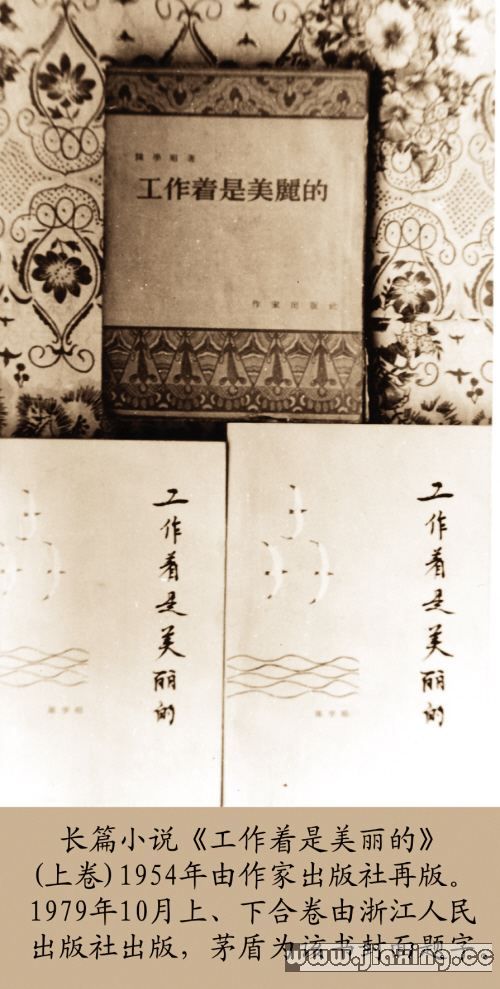 陳學昭著
工作着是美麗的
作家出版社
工作着是美丽的
陈学昭
工作着是美丽的
陈学昭
长篇小说《工作着是美丽的》
(上卷)1954年由作家出版社再版。
1979年10月上、下合卷由浙江人民
出版社出版，茅盾为该书封面题字
www.jiaxing.cc